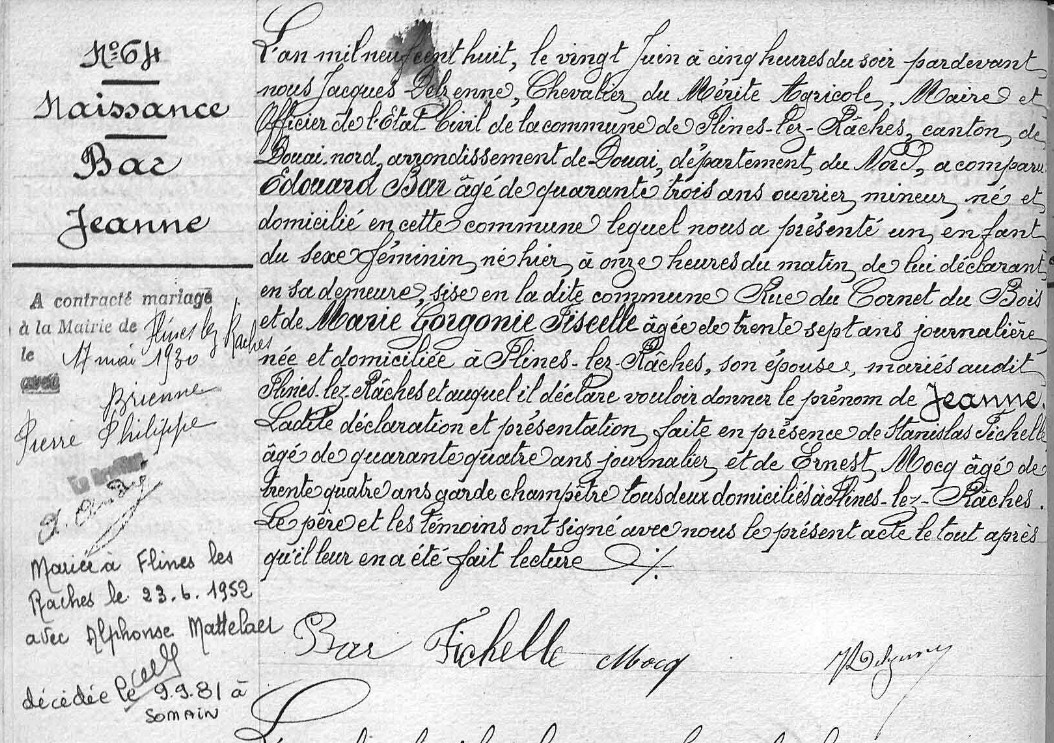 N° 64
Naissance
Bar
Jeanne
A contracté mariage
à la Mairie de Flines lez Raches
le 17 mai 1930
avec
Brienne
Pierre Philippe
Mariée à Flines les
Raches le 23.6.1952
avec Alphonse Mattelaer
décédée le 9.9.81 à
SOMAIN
L'an mil neuf cent huit, le vingt Juin à cinq heures du soir par devant
nous Jacques Delrenne, Chevalier du Mérite Agricole, Maire et
Officier de l'Etat-Civil de la commune de Flines-lez-Râches, canton de
Douai nord, arrondissement de Douai, département du Nord, a comparu
Edouard Bar âgé de quarante trois ans ouvrier mineur né et
domicilié en cette commune lequel nous a présenté un enfant
du sexe féminin né hier à onze heures du matin, de lui déclarant
en sa demeure, sise en la dite commune Rue du Cornet du Bois
et de Marie Gorgonie Fiselle âgée de trente sept ans journalière
née et domiciliée à Flines-lez-Râches, son épouse, mariés audit
Flines-lez-Râches et auquel il déclare vouloir donner le prénom de Jeanne.
Ladite déclaration et présentation faite en présence de Stanislas Fichelle
âgé de quarante quatre ans journalier et de Ernest Mocq âgé de
trente quatre ans garde champêtre tous deux domiciliés à Flines-lez-Râches.
Le père et les témoins ont signé avec nous le présent acte le tout après
qu'il leur en a été fait lecture ./.
Bar Fichelle Mocq